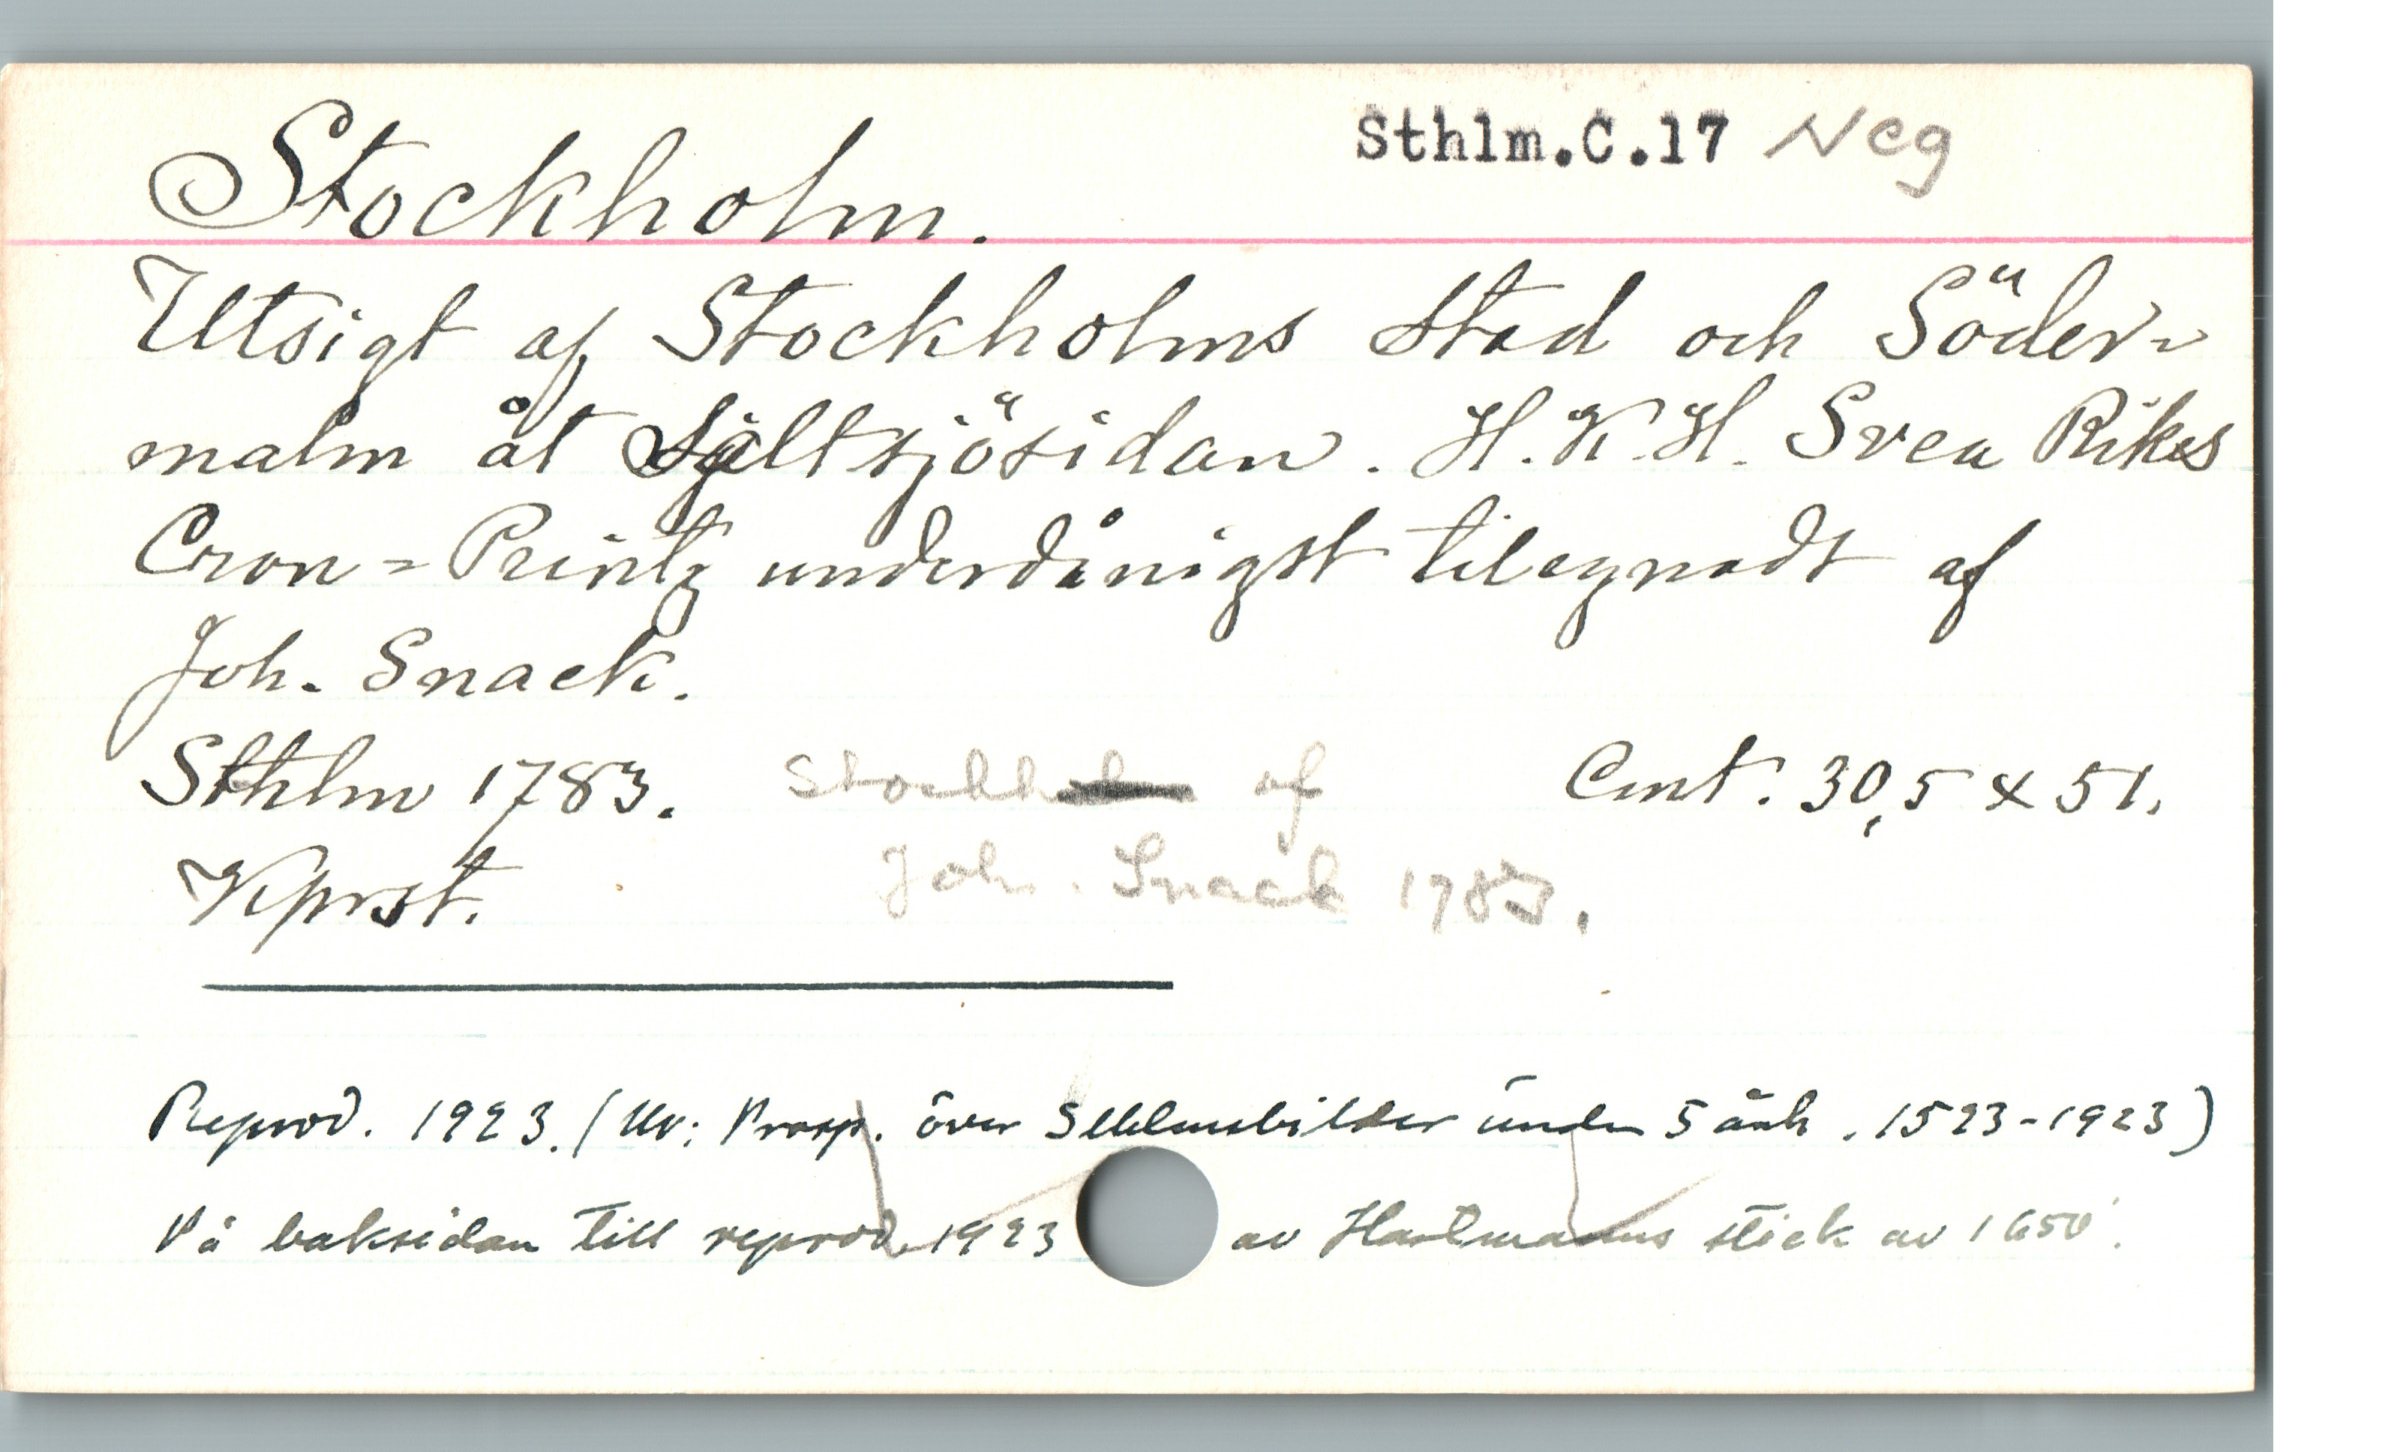 Sthlm.C.17 Neg
Stockholm.
Utsigt af Stockholms Stad och Söder=
malm åt Saltsjösidan. H.K.H. Svea Rikes
Cron=Printz underdånigst tilegnadt af
Joh. Snack.
Sthlm 1783. Stockholm af Cmt. 30,5 x 51.
Kprst. Joh. Snack 1783.
Reprod. 1923. (Ur: Prosp. över Sthlmsbilder under 5 årh. 1523-1923)
På baksidan till reprod. 1923 av Hartmanns stick av 1650.